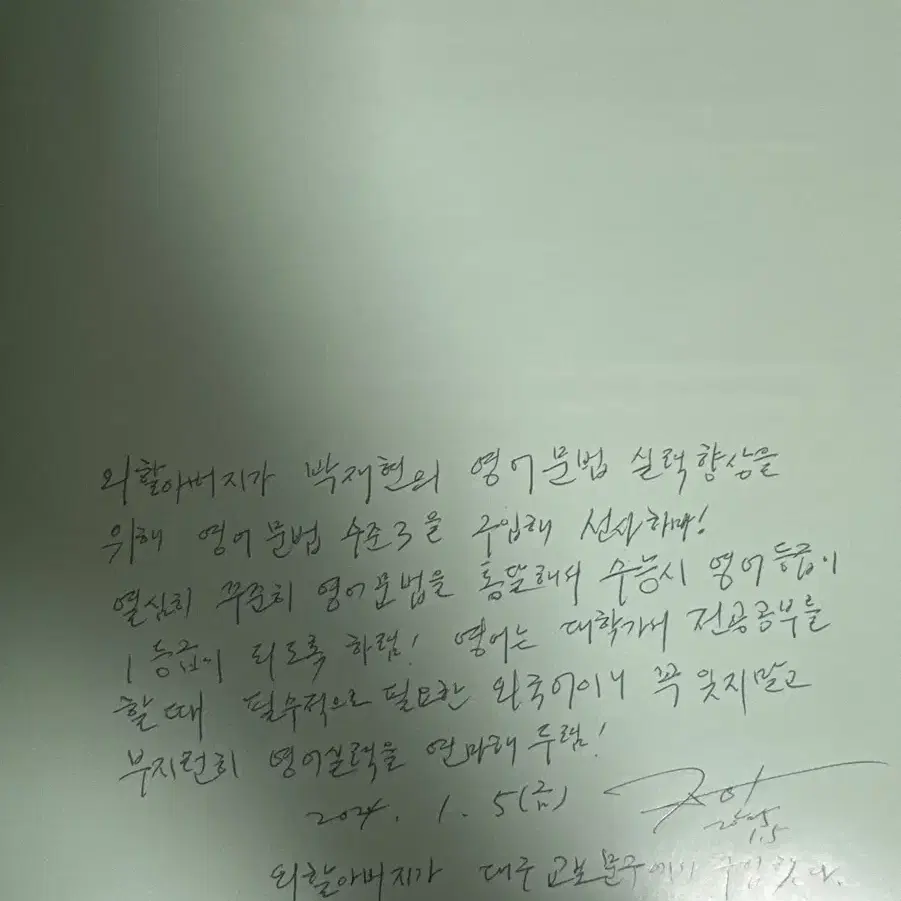 외할아버지가 박재현의 영어문법 실력향상을
위해 영어문법 수준3을 구입해 선사하마!
열심히 꾸준히 영어문법을 통달해서 수능시 영어등급이
1등급이 되도록 하렴! 영어는 대학가서 전공공부를
할때 필수적으로 필요한 외국어이니 꼭 잊지말고
부지런히 영어실력을 연마해 두렴!
2024. 1. 5(금)
외할아버지가 대구 교보문구에서 구입했다.